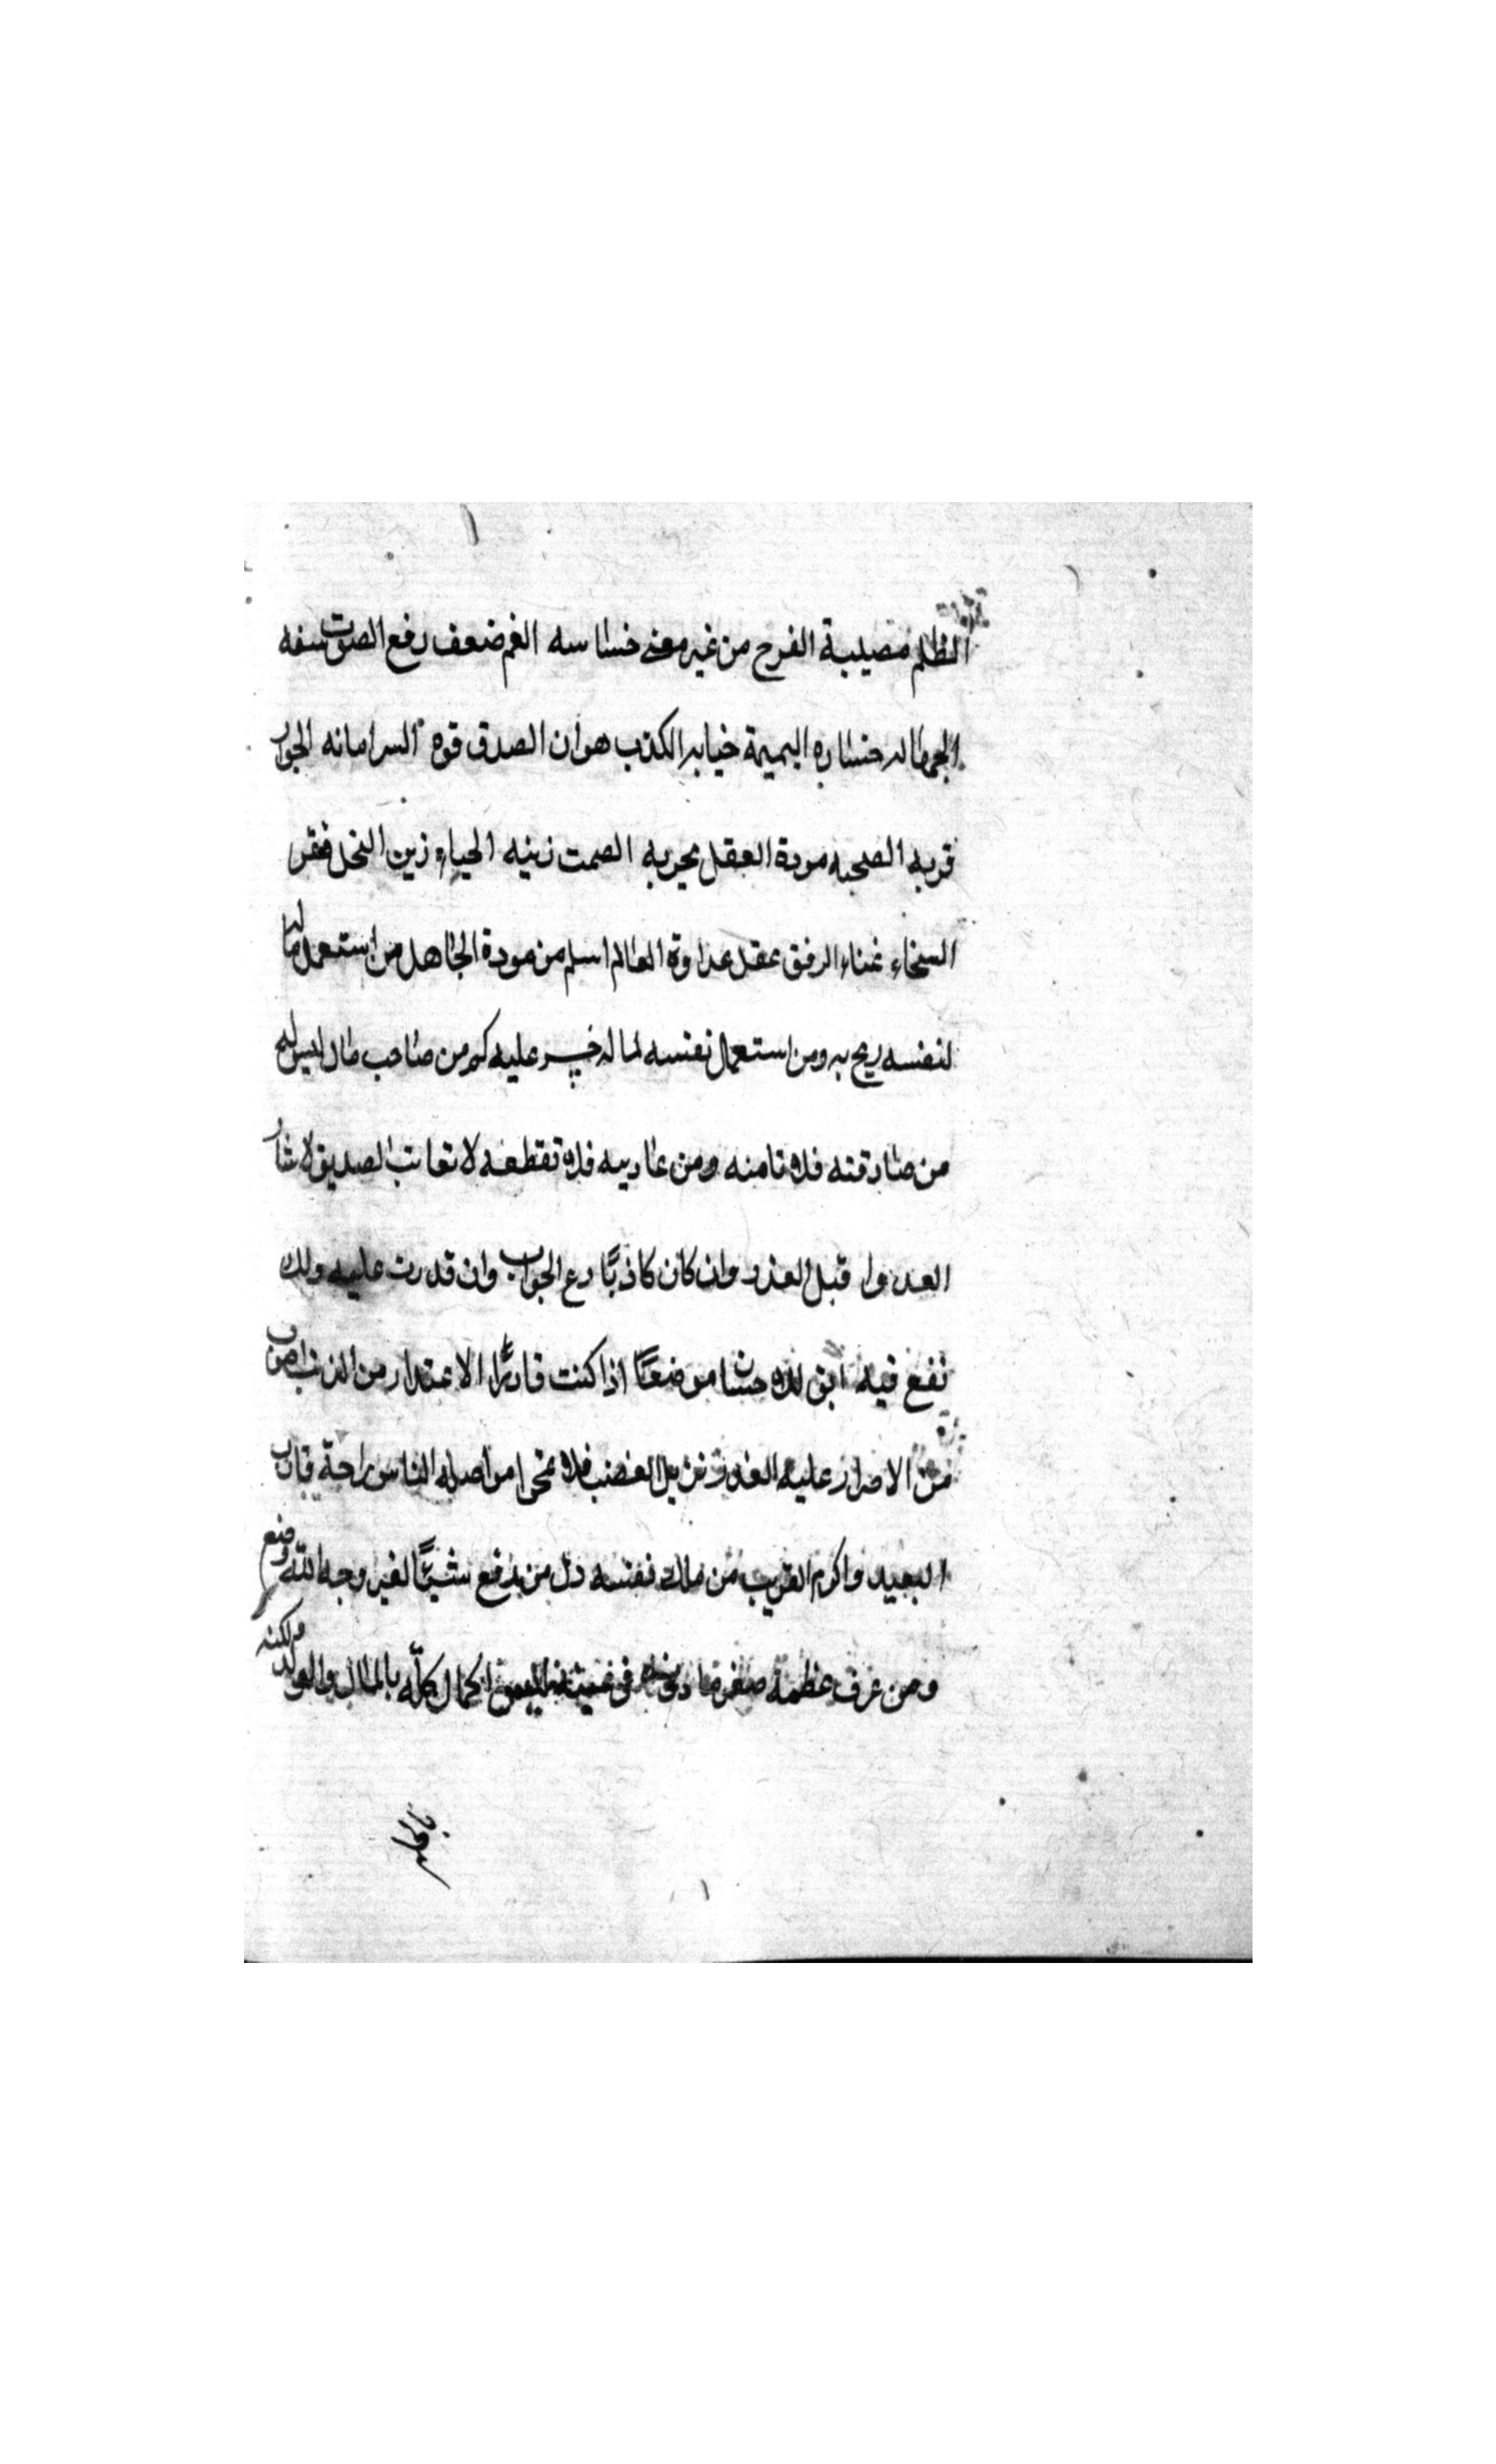 الظلم مصيبة الفرح من غير معنى خساسه الغم ضعف رفع الصوت سفه
الجهاله خساره النميمة خيانه الكذب هوان الصدق قوه السر امانه الجوار
قربه الصحبه مودة العقل تجربه الصمت زينه الحياء زين البخل فقر
السخاء غناء الرفق عقل عداوة العالم اسلم من مودة الجاهل من استعمل ماله
لنفسه ربح به ومن استعمل نفسه لماله خسر عليه كم من صاحب مال ليس له
من صادقته فلا تامنه ومن عاديته فلا تقطعه لا تعاتب الصديق لا تشاور
العدو اقبل العذر وان كان كاذبًا دع الجواب وان قدرت عليه ولك
نفع فيه ابق لذة حسنا موضعًا اذا كنت قادرًا الاعتذار من الذنب اصوب
من الاصرار عليه العذر يزيل الغضب فلا مواصلة الناس راحة قارب
البعيد واكرم القريب من ملك نفسه ذل من يدفع شيئًا لغير وجه الله وضع
ومن عرف عظمة صغر ما دونه في ليس الكمال كله بالمال والولد ولكنه